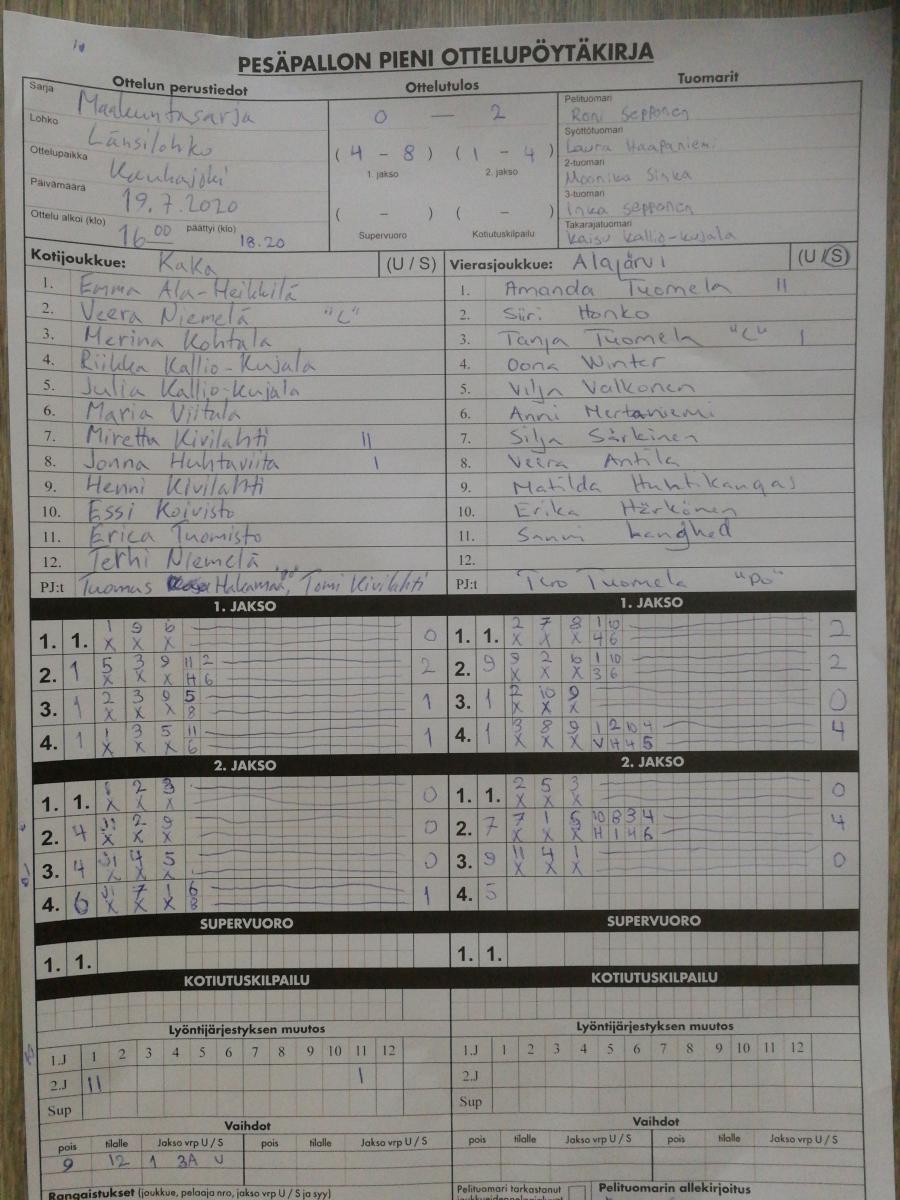 PESÄPALLON PIENI OTTELUPÖYTÄKIRJA
Ottelun perustiedot Ottelutulos Tuomarit
Sarja Maakuntasarja
Lohko Länsilohko
Ottelupaikka Kauhajoki
Päivämäärä 19.7.2020
Ottelu alkoi (klo) 16 00 päättyi (klo) 18.20
0 — 2
( 4 - 8 ) ( 1 - 4 )
1. jakso 2. jakso
( - ) ( - )
Supervuoro Kotiutuskilpailu
Pelituomari
Roni Sepponen
Syöttötuomari
Laura Haapaniemi
2-tuomari
Moonika Sinka
3-tuomari
Inka Sepponen
Takarajatuomari
Kaisu Kallio-Kujala
Kotijoukkue: KaKa (U / S)
1. Emma Ala-Heikkilä
2. Veera Niemelä "C"
3. Merina Kohtala
4. Riikka Kallio-Kujala
5. Julia Kallio-Kujala
6. Maria Viitala
7. Miretta Kivilahti II
8. Jonna Huhtaviita I
9. Henni Kivilahti
10. Essi Koivisto
11. Erica Tuomisto
12. Terhi Niemelä
PJ:t Tuomas Hakamaa, Tomi Kivilahti
Vierasjoukkue: Alajärvi (U / S)
1. Amanda Tuomela II
2. Siiri Honko
3. Tanja Tuomela "C" I
4. Oona Winter
5. Vilja Valkonen
6. Anni Mertaniemi
7. Silja Särkinen
8. Veera Antila
9. Matilda Huhtikangas
10. Erika Härkönen
11. Sanni Langhed
12.
PJ:t Timo Tuomela "PJ"
1. JAKSO
1. 1. 1 9 6 0
X X X
2. 1 5 3 9 11 2 2
X X X H 6
3. 1 2 3 9 5 1
X X X 8
4. 1 1 3 5 11 1
X X X 6
2. JAKSO
1. 1. 1 2 3 0
X X X
2. 4 11 2 9 0
X X X
3. 4 11 4 5 0
X X X
4. 6 11 7 1 6 1
X X X 8
SUPERVUORO
1. 1.
KOTIUTUSKILPAILU
1. JAKSO
1. 1. 2 7 8 1 10 2
X X X 4 6
2. 9 9 2 6 1 10 2
X X X 3 6
3. 1 2 10 9 0
X X X
4. 1 3 8 9 1 2 10 4 4
X X X V H 4 5
2. JAKSO
1. 1. 2 5 3 0
X X X
2. 7 7 1 5 10 8 3 4 4
X X X H 1 4 6
3. 9 11 4 1 0
X X X
4. 5
SUPERVUORO
1. 1.
KOTIUTUSKILPAILU
Lyöntijärjestyksen muutos
1.J 1 2 3 4 5 6 7 8 9 10 11 12
2.J 11 1
Sup
Vaihdot
pois tilalle Jakso vrp U / S pois tilalle Jakso vrp U / S
9 12 1 3A U
Rangaistukset (joukkue, pelaaja nro, jakso vrp U / S ja syy)
Lyöntijärjestyksen muutos
1.J 1 2 3 4 5 6 7 8 9 10 11 12
2.J
Sup
Vaihdot
pois tilalle Jakso vrp U / S pois tilalle Jakso vrp U / S
Pelituomari tarkastanut
Pelituomarin allekirjoitus